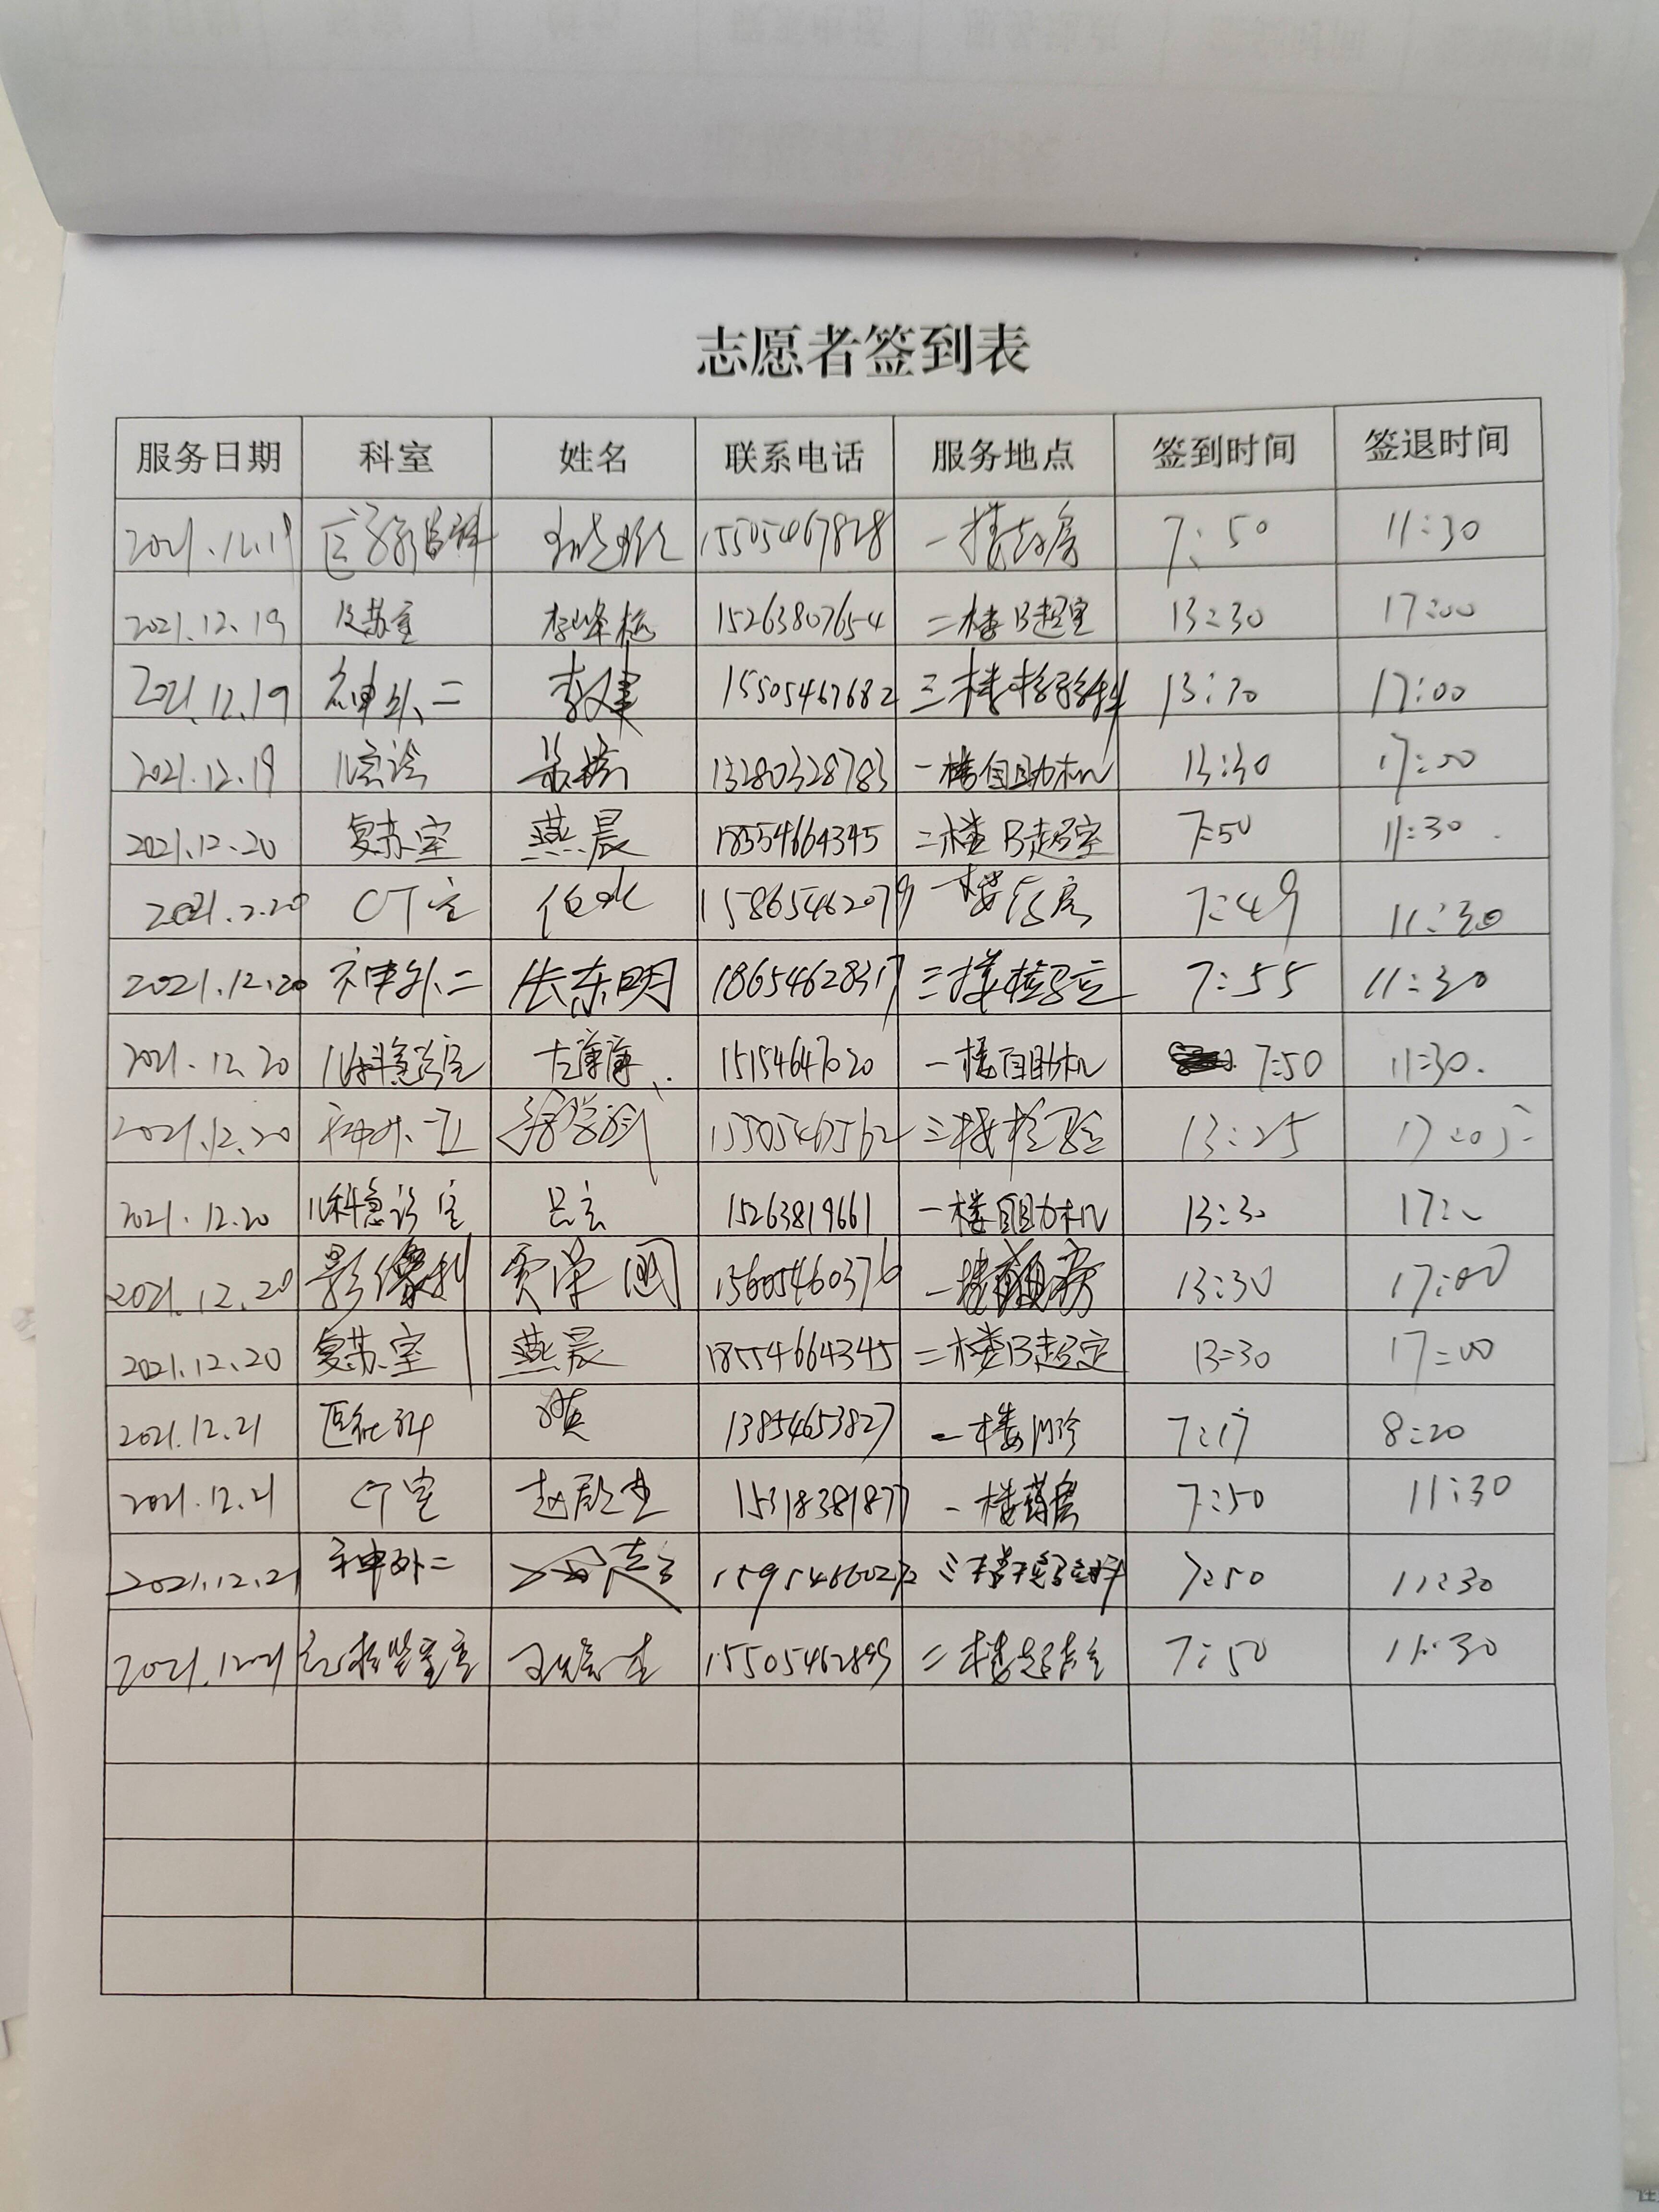 志愿者签到表
服务日期 科室 姓名 联系电话 服务地点 签到时间 签退时间
2021.12.19 医学影像科 15505467828 一楼药房 7:50 11:30
2021.12.19 复苏室 15263807654 二楼B超室 13:30 17:00
2021.12.19 神外二 李建 15505467682 三楼检验科 13:30 17:00
2021.12.19 儿急诊 13280328783 一楼自助机 13:30 17:00
2021.12.20 复苏室 燕晨 18554664345 二楼B超室 7:50 11:30
2021.2.20 CT室 15865462079 一楼药房 7:49 11:30
2021.12.20 神外二 张东明 18654628317 三楼检验室 7:55 11:30
2021.12.20 儿科急诊室 左康康 15154647020 一楼自助机 7:50 11:30
2021.12.20 15505467562 三楼检验 13:25 17:05
2021.12.20 儿科急诊室 15263819661 一楼自助机 13:30
2021.12.20 影像科 贾学国 15605460376 一楼 13:30 17:00
2021.12.20 复苏室 燕晨 18554664345 二楼B超室 13:30 17:00
2021.12.21 13854653827 一楼门诊 7:17 8:20
2021.12.21 CT室 15318381877 一楼药房 7:50 11:30
2021.12.21 神外二 三楼检验科 7:50 11:30
2021.12.21 纪检监察室 15505462899 二楼 7:50 11:30